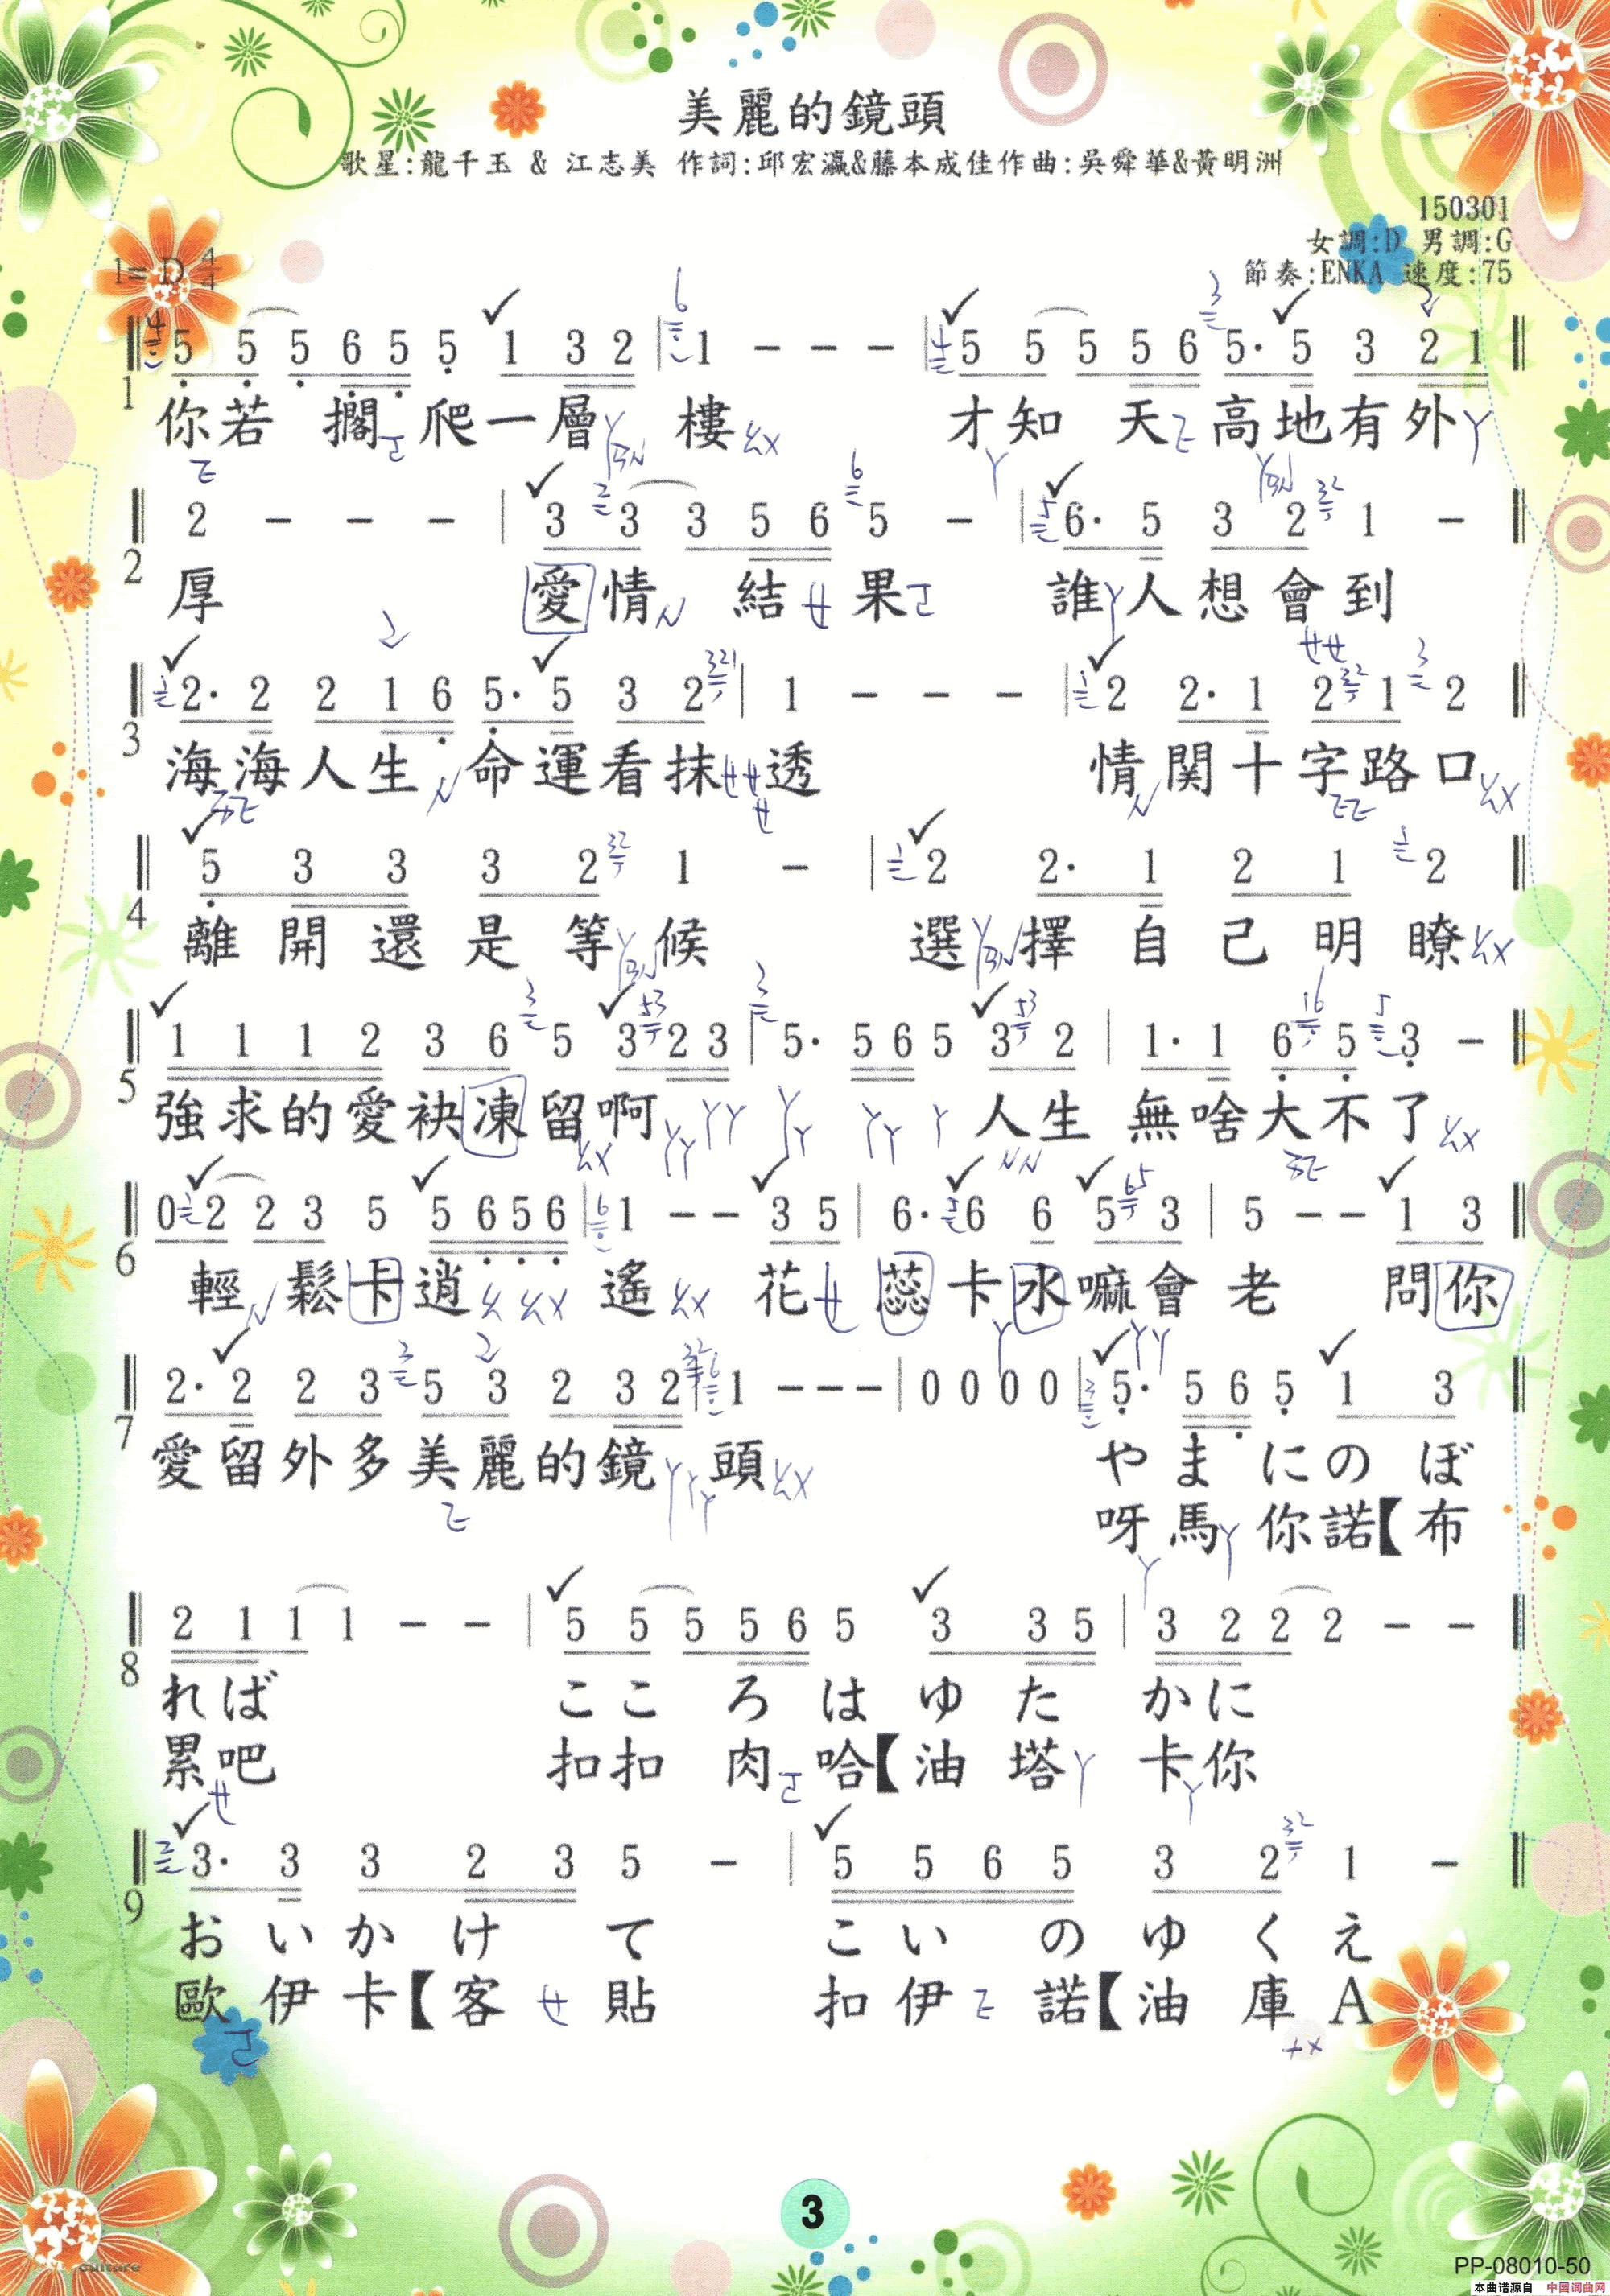 美麗的鏡頭
歌星:龍千玉 & 江志美 作詞:邱宏瀛&藤本成佳作曲:吳舜華&黃明洲
150301
女調:D 男調:G
1= D 4/4
節奏:ENKA 速度:75
5 5 5 6 5 5 1 3 2 | 1 - - - | 5 5 5 5 6 5· 5 3 2 1
1
你若 擱 爬一層 樓 才知 天 高地有外
2 - - - | 3 3 3 5 6 5 - | 6· 5 3 2 1 -
2
厚 愛情 結 果 誰人想會到
2· 2 2 1 6 5· 5 3 2 | 1 - - - | 2 2· 1 2 1 2
3
海海人生 命運看抹 透 情関十字路口
5 3 3 3 2 1 - | 2 2· 1 2 1 2
4
離開還是等候 選擇自己明瞭
1 1 1 2 3 6 5 3 2 3 | 5· 5 6 5 3 2 | 1· 1 6 5 3 -
5
強求的愛袂凍留啊 人生 無啥大不了
0 2 2 3 5 5 6 5 6 | 1 - - 3 5 | 6· 6 6 5 3 | 5 - - 1 3
6
輕 鬆卡逍 遙 花 蕊卡水嘛會老 問你
2· 2 2 3 5 3 2 3 2 | 1 - - - | 0 0 0 0 | 5· 5 6 5 1 3
7
愛留外多美麗的鏡 頭 やま にの ぼ
呀馬 你諾【布
2 1 1 1 - - | 5 5 5 5 6 5 3 3 5 | 3 2 2 2 - -
8
れば ここ ろ は ゆ た かに
累吧 扣扣 肉 哈【油 塔 卡你
3· 3 3 2 3 5 - | 5 5 6 5 3 2 1 -
9
お い か け て こ い の ゆ く え
歐 伊 卡【客 貼 扣 伊 諾【油 庫 A
3
culture
PP-08010-50
本曲谱源自 中国词曲网